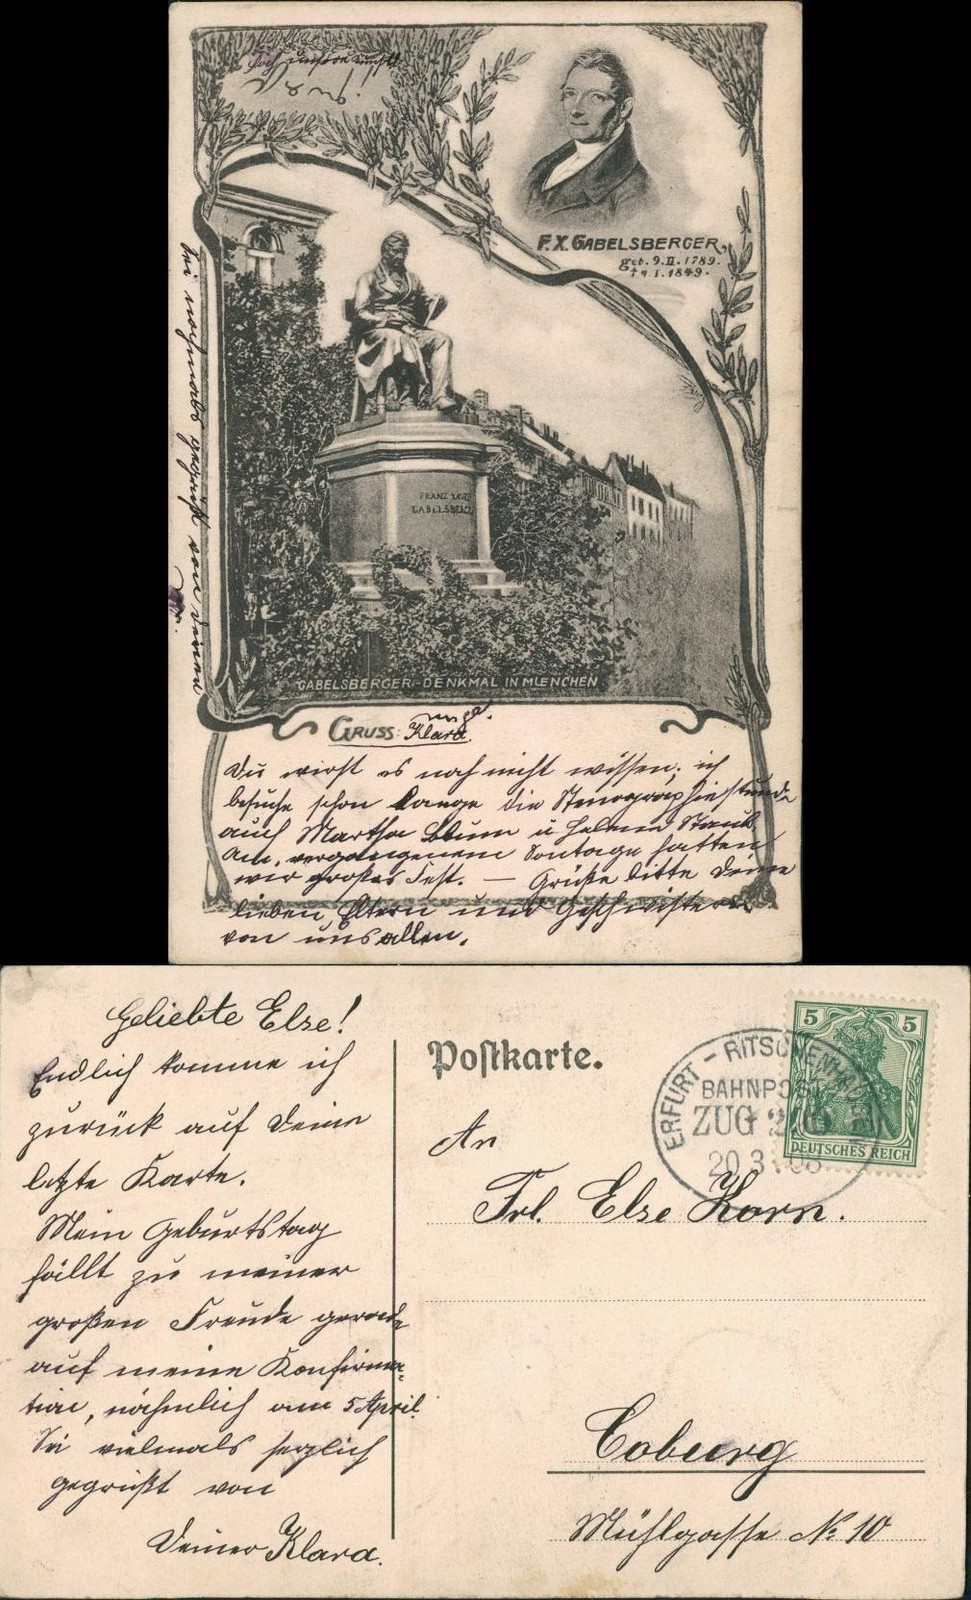 Hoch unsre Kunst!
F. X. GABELSBERGER,
geb. 9. II. 1789.
† 4. I. 1849.
FRANZ XAV.
GABELSBERGER
GABELSBERGER-DENKMAL IN MUENCHEN
GRUSS: Klara.
Du wirst es noch nicht wissen; ich
besuche schon lange die Stenographiestunde
auch Martha Blum u Helene Staub.
Am, vergangenem Sontage hatten
wir großes Fest. — Grüße bitte Deine
lieben Eltern und Geschwister
von uns allen.
Sei nochmals gegrüßt von Deiner
Geliebte Else!
Endlich komme ich
zurück auf Deine
letzte Karte.
Mein Geburtstag
fällt zu meiner
großen Freude gerade
auf meine Konfirma-
tion, nähmlich am 5 April.
Sei vielmals herzlich
gegrüßt von
Deiner Klara.
Postkarte.
ERFURT - RITSCHENHAUSEN
BAHNPOST
ZUG
20.3.08
5 5
DEUTSCHES REICH
An
Frl. Else Korn.
Coburg
Mühlgasse № 10